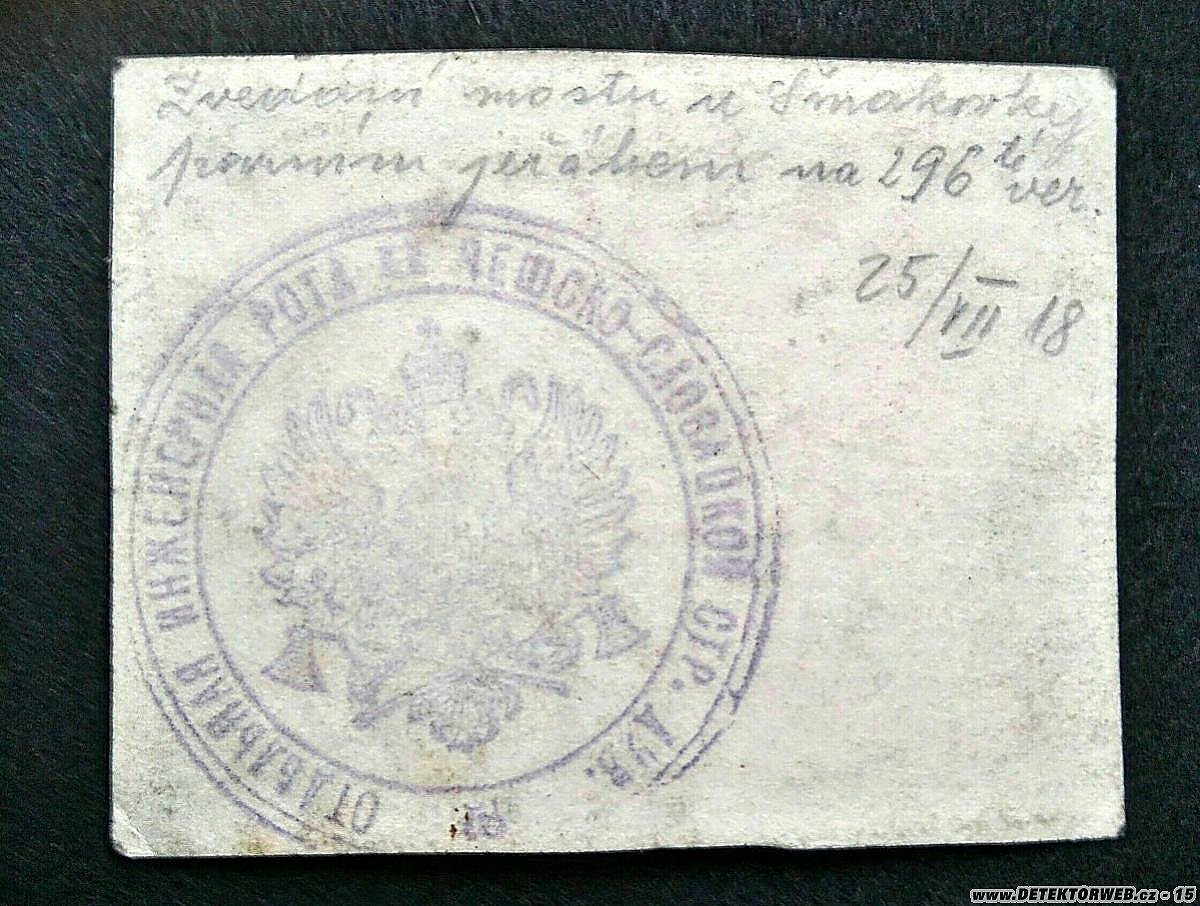 Zvedání mostu u Šmakovky
parním jeřábem na 296té ver.
25/VII 18
ОТДѢЛЬНАЯ ИНЖЕНЕРНАЯ РОТА ЧЕШСКО-СЛОВАЦКОЙ СТР. ДИВ.
www.DETEKTORWEB.cz - 15